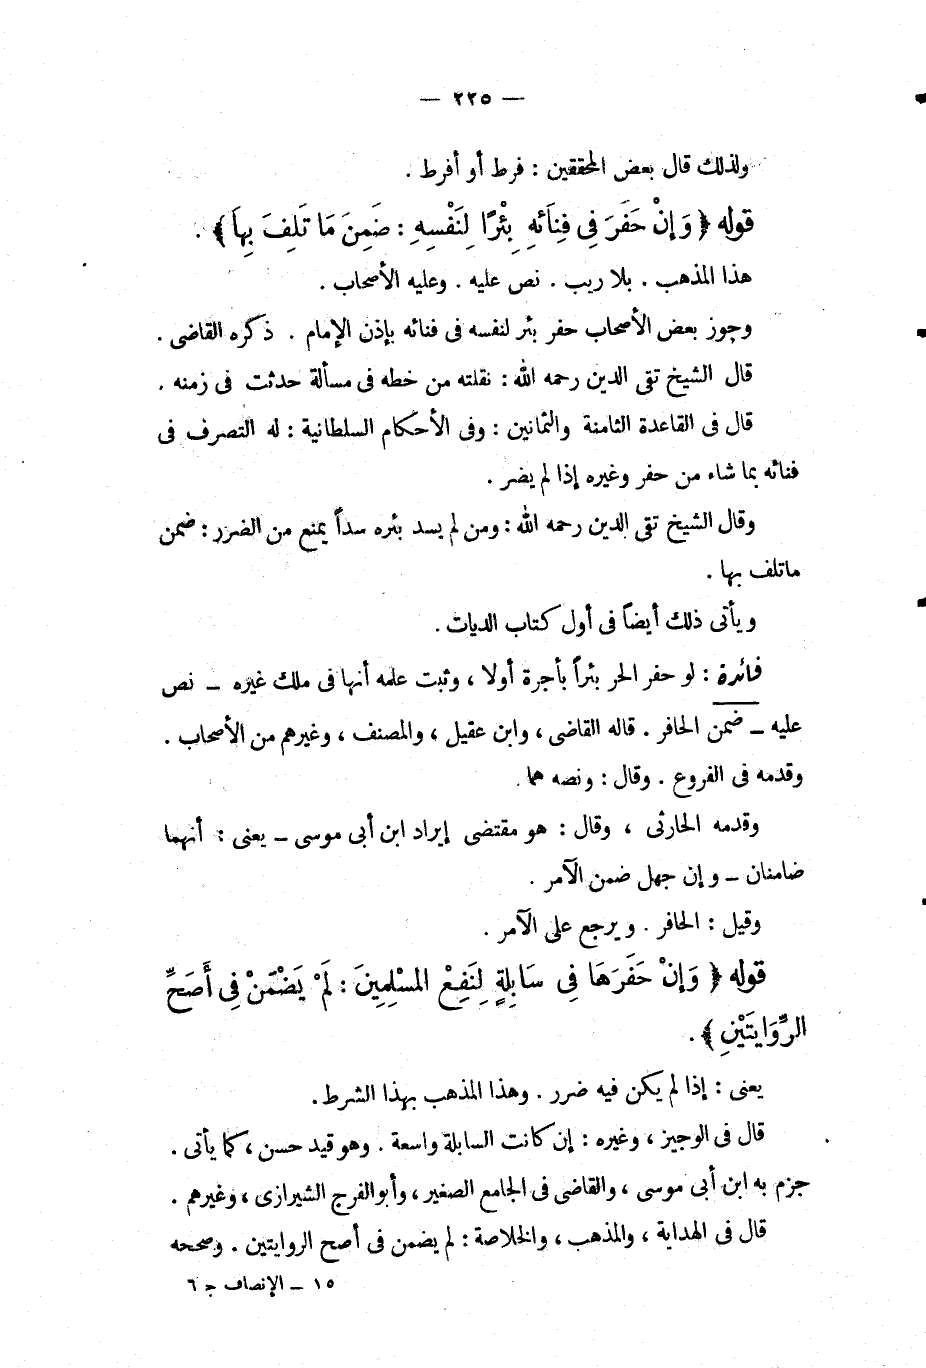 — ٢٢٥ —
ولذلك قال بعض المحققين : فرط أو أفرط .
قوله ﴿ وَإِنْ حَفَرَ فِى فِنَائِهِ بِئْرًا لِنَفْسِهِ : ضَمِنَ مَا تَلِفَ بِهَا ﴾ .
هذا المذهب . بلا ريب . نص عليه . وعليه الأصحاب .
وجوز بعض الأصحاب حفر بئر لنفسه فى فنائه بإذن الإمام . ذكره القاضى .
قال الشيخ تقى الدين رحمه الله : نقلته من خطه فى مسألة حدثت فى زمنه .
قال فى القاعدة الثامنة والثمانين : وفى الأحكام السلطانية : له التصرف فى
فنائه بما شاء من حفر وغيره إذا لم يضر .
وقال الشيخ تقى الدين رحمه الله : ومن لم يسد بئره سداً يمنع من الضرر : ضمن
ماتلف بها .
ويأتى ذلك أيضاً فى أول كتاب الديات .
فائدة : لو حفر الحر بئراً بأجرة أولا ، وثبت علمه أنها فى ملك غيره – نص
عليه – ضمن الحافر . قاله القاضى ، وابن عقيل ، والمصنف ، وغيرهم من الأصحاب .
وقدمه فى الفروع . وقال : ونصه هما .
وقدمه الحارثى ، وقال : هو مقتضى إيراد ابن أبى موسى – يعنى : أنهما
ضامنان – وإن جهل ضمن الآمر .
وقيل : الحافر . ويرجع على الآمر .
قوله ﴿ وَإِنْ حَفَرَهَا فِى سَابِلَةٍ لِنَفْعِ المسْلِمِينَ : لَمْ يَضْمَنْ فِى أَصَحِّ
الرِّوَايَتَيْنِ ﴾ .
يعنى : إذا لم يكن فيه ضرر . وهذا المذهب بهذا الشرط .
قال فى الوجيز ، وغيره : إن كانت السابلة واسعة . وهو قيد حسن ، كما يأتى .
جزم به ابن أبى موسى ، والقاضى فى الجامع الصغير ، وأبو الفرج الشيرازى ، وغيرهم .
قال فى الهداية ، والمذهب ، والخلاصة : لم يضمن فى أصح الروايتين . وصححه
١٥ – الإنصاف ج ٦